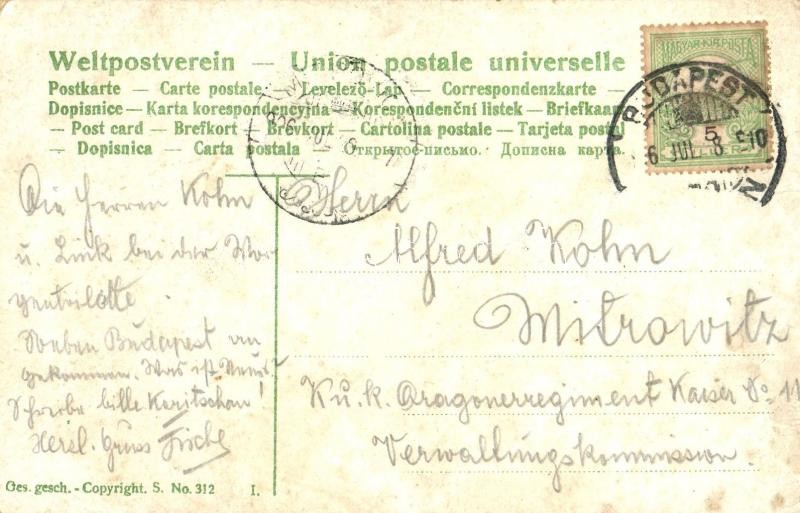 Weltpostverein — Union postale universelle
Postkarte — Carte postale — Levelező-Lap — Correspondenzkarte —
Dopisnice — Karta korespondencyjna — Korespondenční listek — Briefkaart
— Post card — Brefkort — Brevkort — Cartolina postale — Tarjeta postal
— Dopisnica — Carta postala — Открытое письмо. Дописна карта.
MAGYAR KIR. POSTA
5
BUDAPEST
6 JUL 8
Herrn
Alfred Kohn
Mitrowitz
K u. k. Dragonerregiment Kaiser No 11
Verwaltungskommission.
Die Herren Kohn
u. Link bei der
Soeben Budapest an
gekommen. Was ist Neues?
Schreibe bitte
Herzl. Gruss
Ges. gesch. - Copyright. S. No. 312 I.